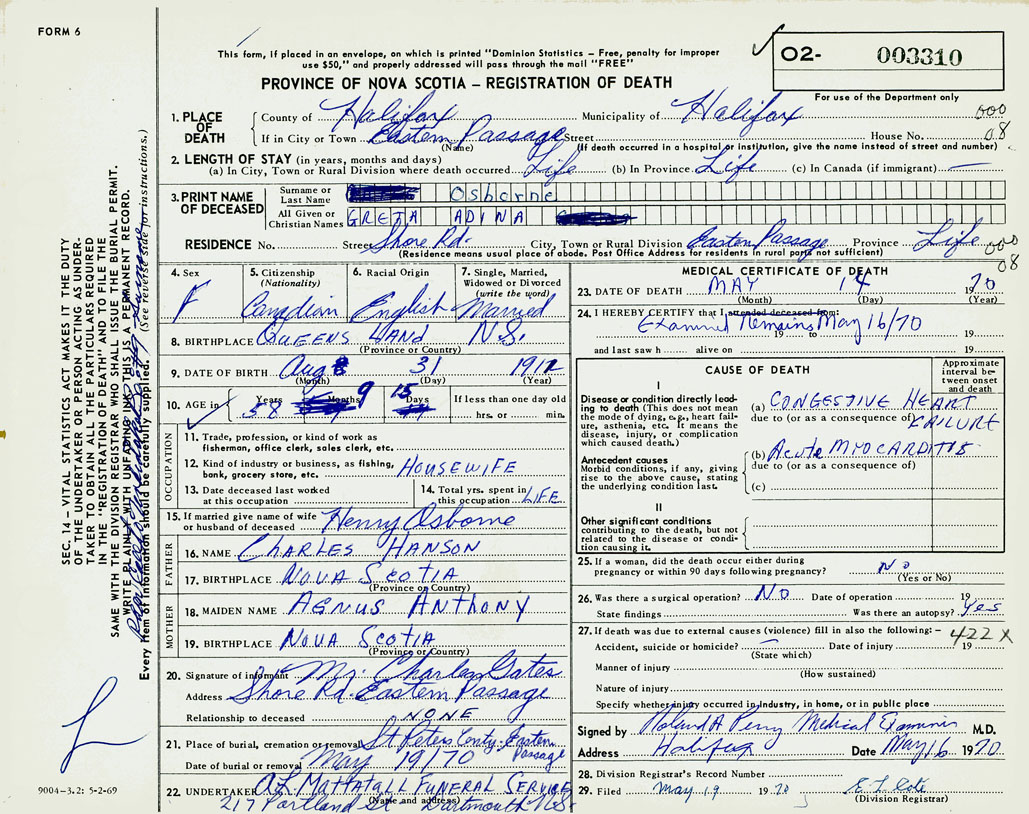 FORM 6
This form, if placed in an envelope, on which is printed "Dominion Statistics – Free, penalty for improper
use $50," and properly addressed will pass through the mail "FREE"
O2- 003310
For use of the Department only
PROVINCE OF NOVA SCOTIA – REGISTRATION OF DEATH
1. PLACE OF DEATH
County of Halifax Municipality of Halifax 000
If in City or Town Eastern Passage Street House No. 08
(Name) (If death occurred in a hospital or institution, give the name instead of street and number)
2. LENGTH OF STAY (in years, months and days)
(a) In City, Town or Rural Division where death occurred Life (b) In Province Life (c) In Canada (if immigrant) —
3. PRINT NAME OF DECEASED
Surname or Last Name Osborne
All Given or Christian Names GRETA ADINA
RESIDENCE No. Street Shore Rd. City, Town or Rural Division Eastern Passage Province Life 000
(Residence means usual place of abode. Post Office Address for residents in rural parts not sufficient) 08
4. Sex F
5. Citizenship (Nationality) Canadian
6. Racial Origin English
7. Single, Married, Widowed or Divorced (write the word) Married
8. BIRTHPLACE QUEENS LAND N.S.
(Province or Country)
9. DATE OF BIRTH Aug 31 1912
(Month) (Day) (Year)
10. AGE in Years 58 Months 9 Days 15 If less than one day old
hrs. or min.
OCCUPATION
11. Trade, profession, or kind of work as
fisherman, office clerk, sales clerk, etc.
12. Kind of industry or business, as fishing,
bank, grocery store, etc. HOUSEWIFE
13. Date deceased last worked
at this occupation
14. Total yrs. spent in
this occupation LIFE
15. If married give name of wife
or husband of deceased Henry Osborne
FATHER
16. NAME CHARLES HANSON
17. BIRTHPLACE NOVA SCOTIA
(Province or Country)
MOTHER
18. MAIDEN NAME AGNUS ANTHONY
19. BIRTHPLACE NOVA SCOTIA
(Province or Country)
20. Signature of informant Mr. Charles Gates
Address Shore Rd. Eastern Passage
Relationship to deceased NONE
21. Place of burial, cremation or removal St Peters Cemty. Eastern Passage
Date of burial or removal May 19/70
22. UNDERTAKER A.L. MATTATALL FUNERAL SERVICE
(Name and address)
217 Portland St Dartmouth N.S.
MEDICAL CERTIFICATE OF DEATH
23. DATE OF DEATH MAY 14 1970
(Month) (Day) (Year)
24. I HEREBY CERTIFY that I attended deceased from:
Examined Remains May 16/70
19 to 19
and last saw h alive on 19
CAUSE OF DEATH
Approximate interval between onset and death
I
Disease or condition directly leading to death (This does not mean the mode of dying, e.g., heart failure, asthenia, etc. It means the disease, injury, or complication which caused death.)
(a) CONGESTIVE HEART FAILURE
due to (or as a consequence of)
Antecedent causes
Morbid conditions, if any, giving rise to the above cause, stating the underlying condition last.
(b) Acute MYOCARDITIS
due to (or as a consequence of)
(c)
II
Other significant conditions
contributing to the death, but not related to the disease or condition causing it.
25. If a woman, did the death occur either during
pregnancy or within 90 days following pregnancy? No
(Yes or No)
26. Was there a surgical operation? No Date of operation 19
State findings Was there an autopsy? Yes
27. If death was due to external causes (violence) fill in also the following: – 422X
Accident, suicide or homicide? — Date of injury 19
(State which)
Manner of injury
(How sustained)
Nature of injury
Specify whether injury occurred in industry, in home, or in public place
Signed by Roland A Perry Medical Examiner M.D.
Address Halifax Date May 16 1970
28. Division Registrar's Record Number
29. Filed May 19 1970 E L Cote
(Division Registrar)
SEC. 14 – VITAL STATISTICS ACT MAKES IT THE DUTY
OF THE UNDERTAKER OR PERSON ACTING AS UNDER-
TAKER TO OBTAIN ALL THE PARTICULARS REQUIRED
IN THE "REGISTRATION OF DEATH" AND TO FILE THE
SAME WITH THE DIVISION REGISTRAR WHO SHALL ISSUE THE BURIAL PERMIT.
WRITE PLAINLY WITH UNFADING INK THIS IS A PERMANENT RECORD.
Every item of information should be carefully supplied. (See reverse side for instructions.)
9004–3.2: 5-2-69